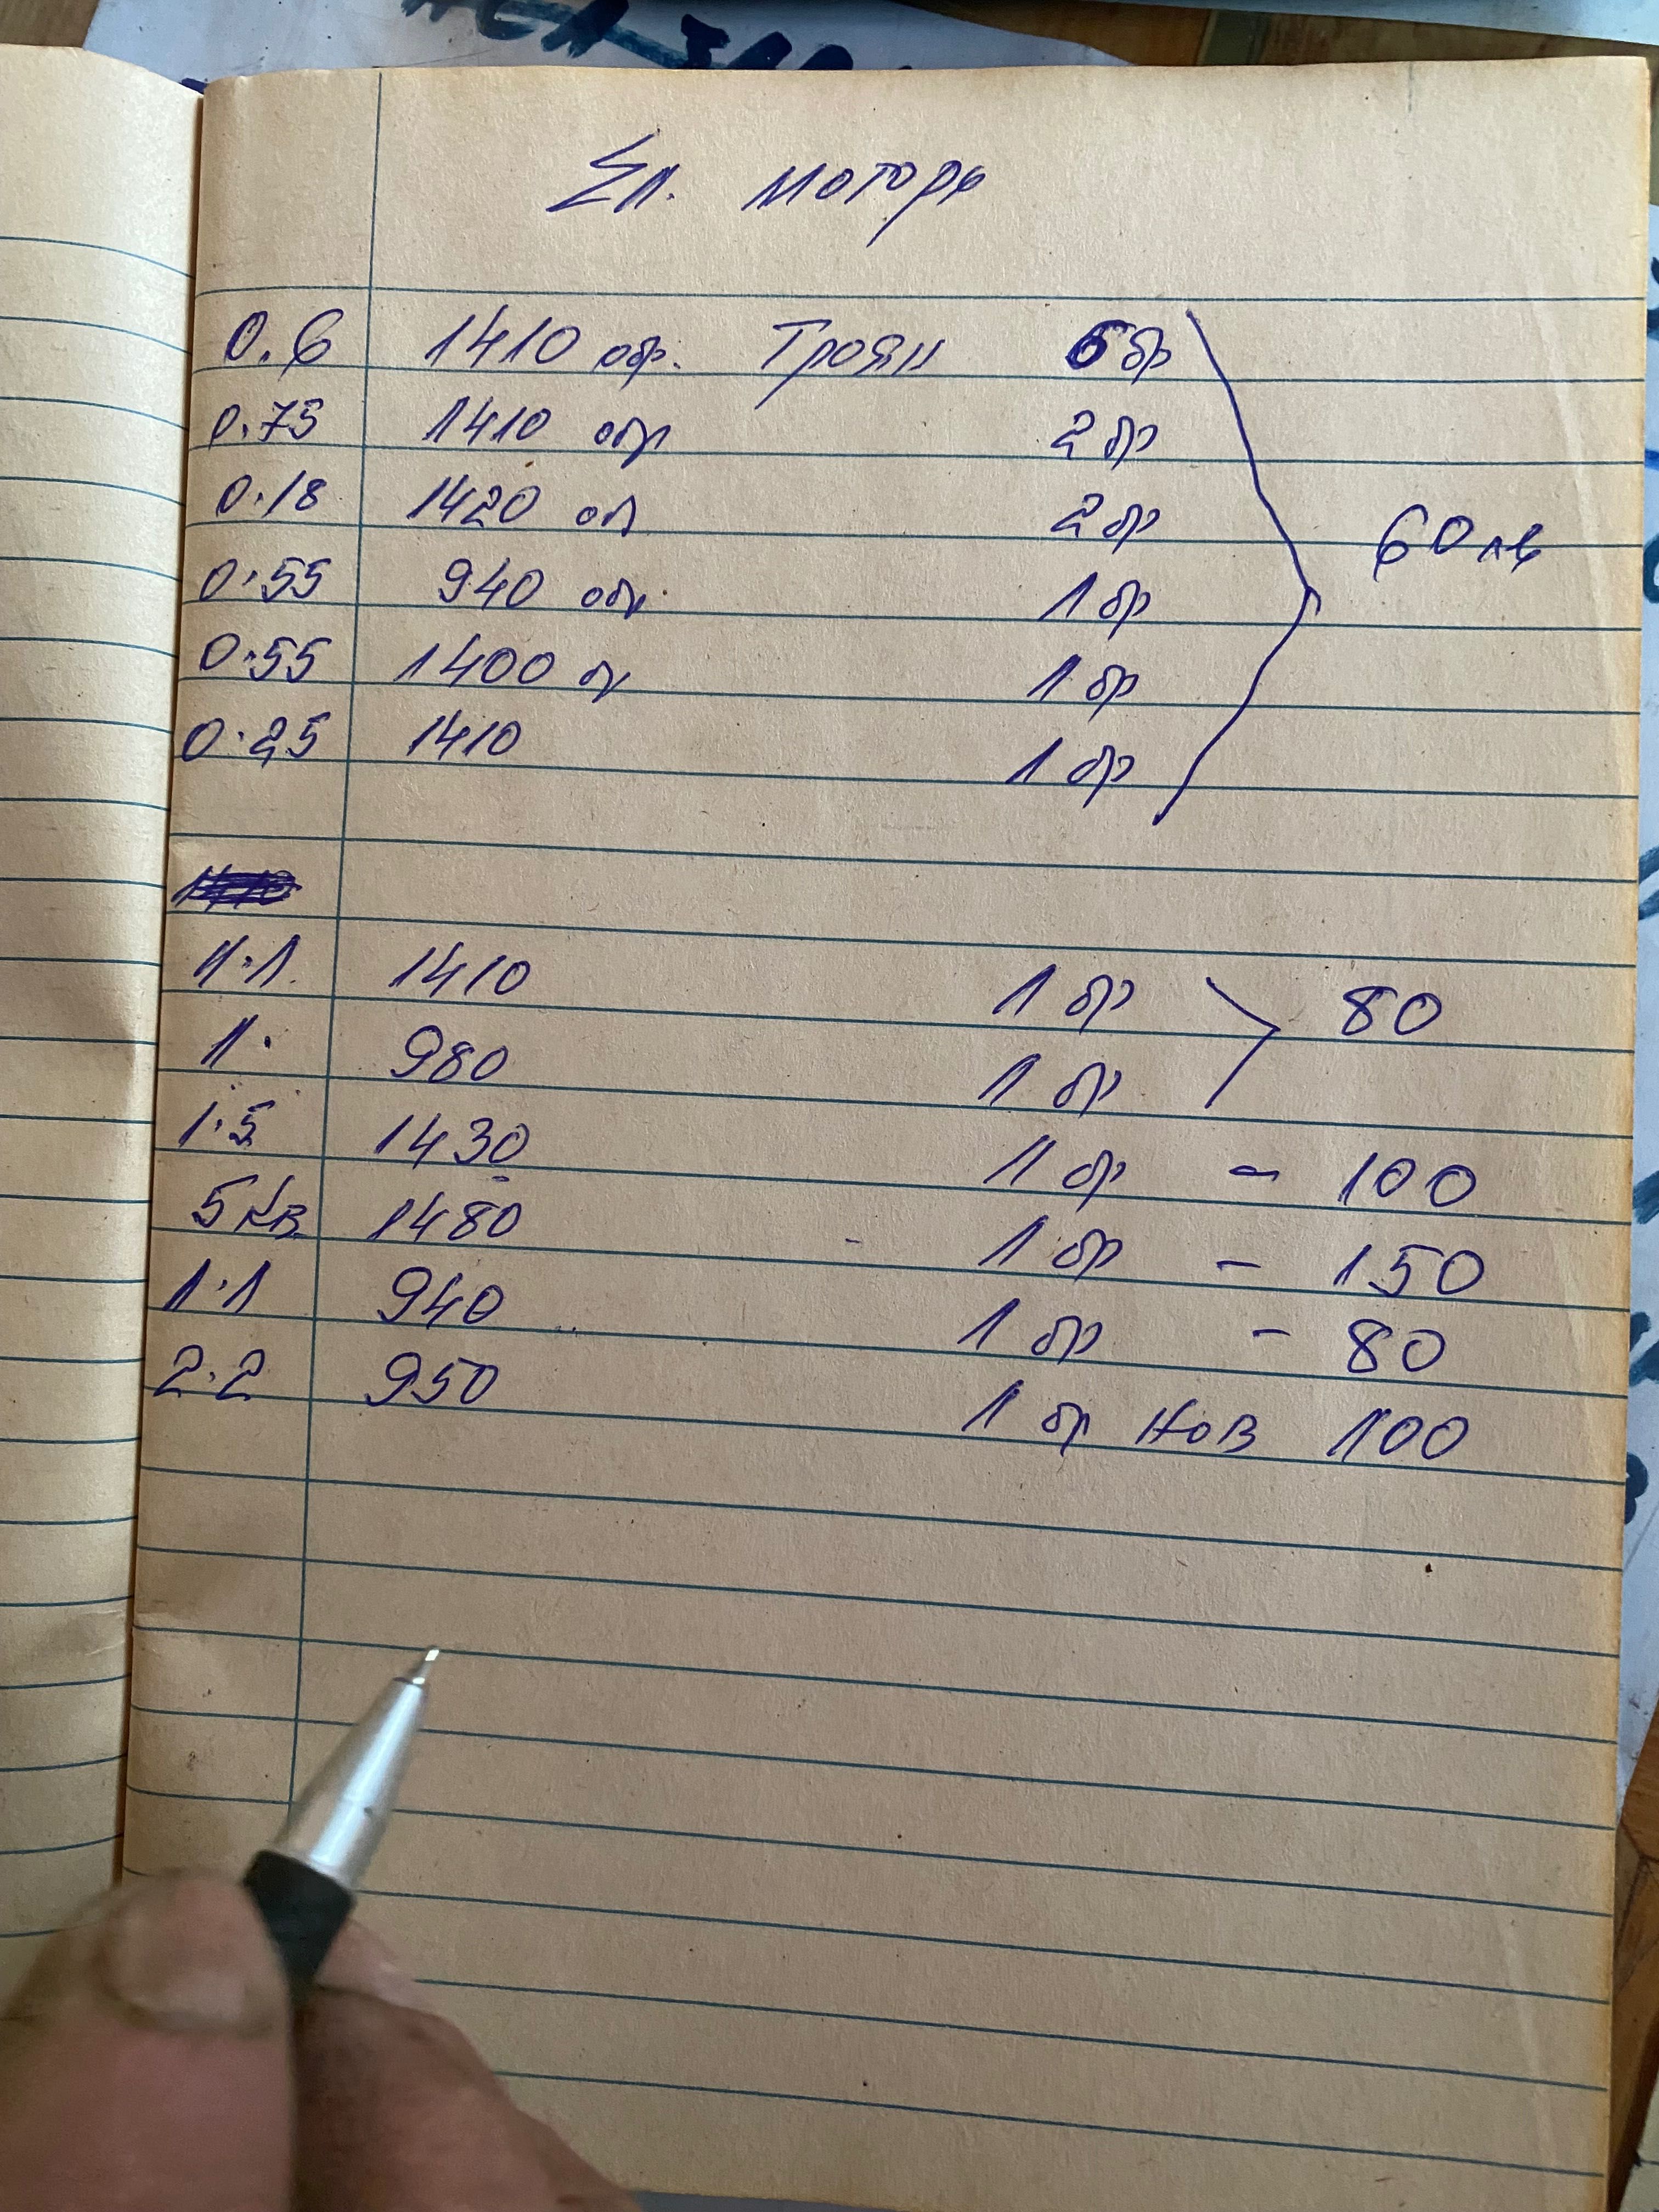 Ел. мотори
0.6 1410 обр. Троян 6 бр
0.75 1410 обр 2 бр
0.18 1420 об 2 бр
0.55 940 обр. 1 бр
60 лв
0.55 1400 1 бр
0.25 1410 1 бр
1.1. 1410 1 бр 80
1. 980 1 бр
1.5 1430 1 бр - 100
5 кв. 1480 1 бр - 150
1.1 940 1 бр - 80
2.2 950 1 бр нов 100